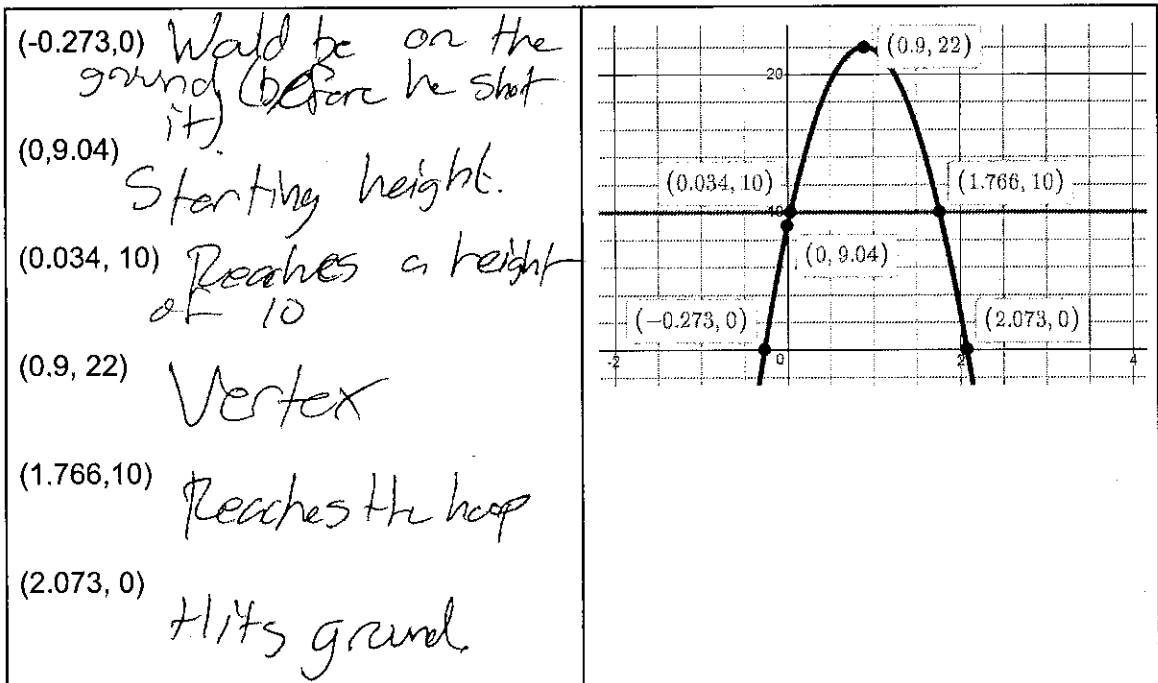 (-0.273,0) Would be on the
ground (before he shot
it)
(0,9.04)
Starting height.
(0.034, 10) Reaches a height
of 10
(0.9, 22)
Vertex
(1.766,10)
Reaches the hoop
(2.073, 0)
Hits ground.
(0.9, 22)
20
(0.034, 10)
(1.766, 10)
10
(0, 9.04)
(−0.273, 0)
(2.073, 0)
-2
0
2
4